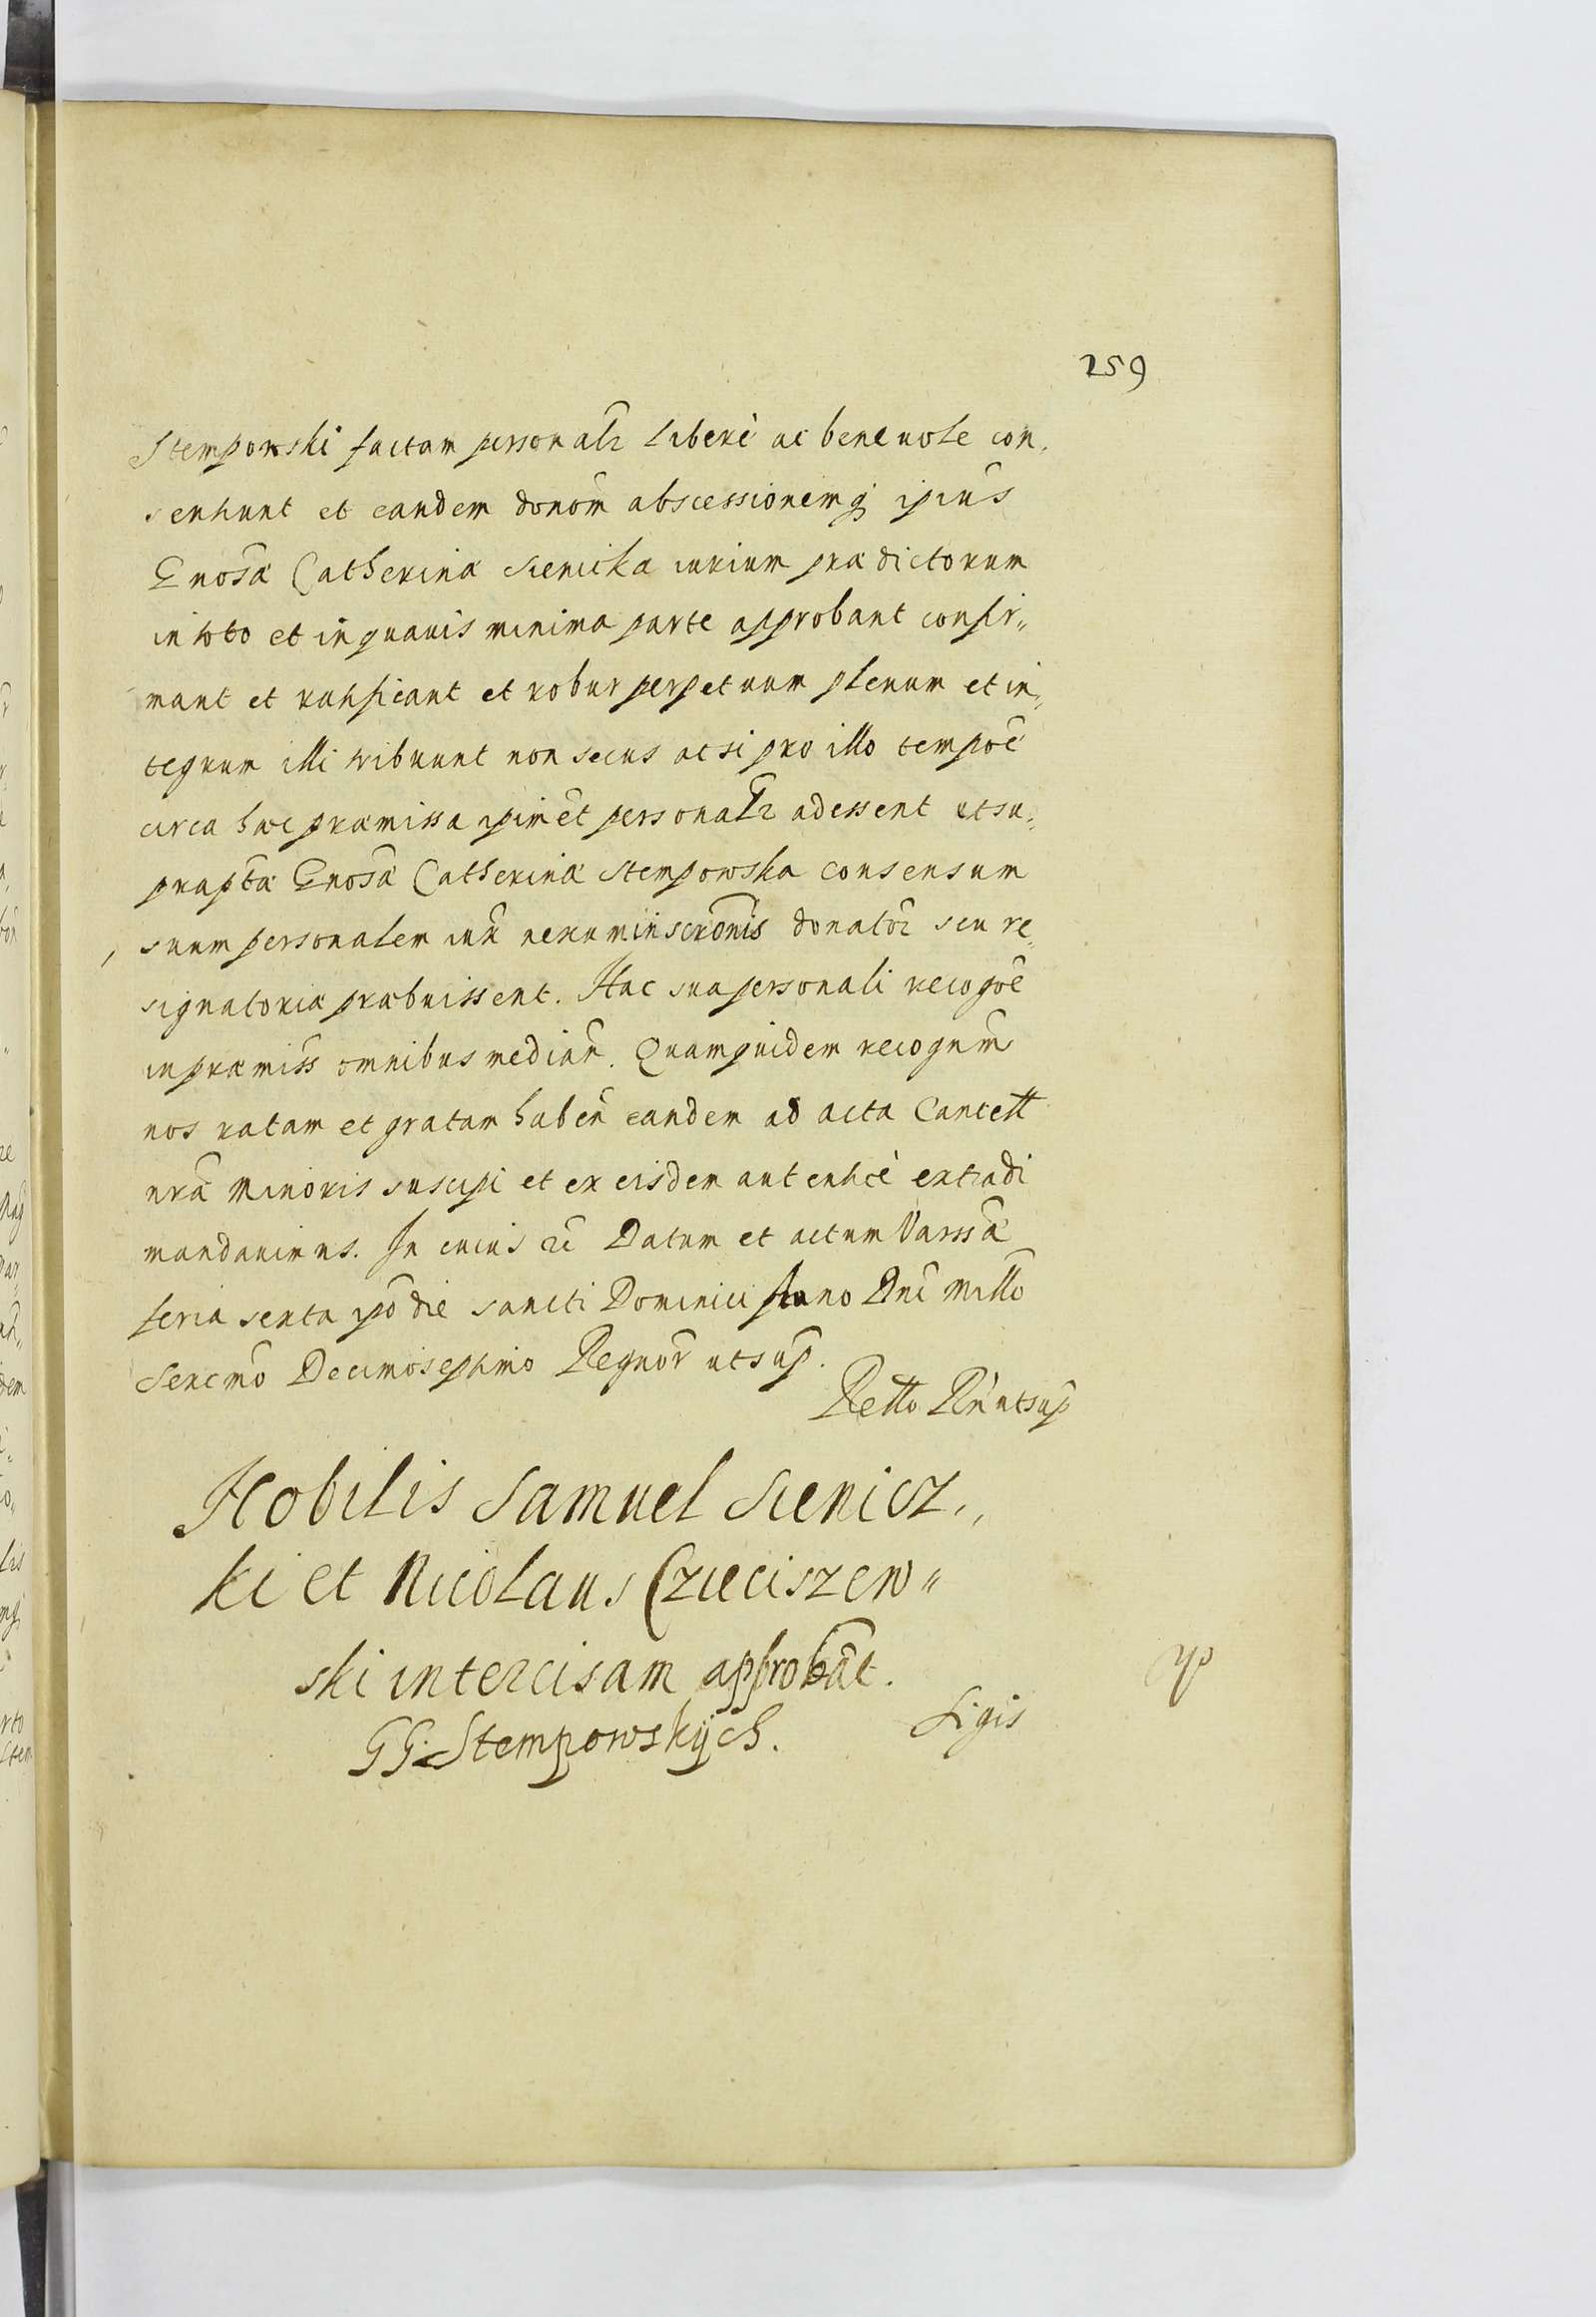 259
Stempowski factam personalr liberè ac beneuole con,
sentiunt et eandem donom̃ abscessionemq ipius
Gnosæ Catherinæ Sienicka iurium prædictorum
in toto et in quauis minima parte approbant confir„
mant et ratificant et robur perpetuum plenum et in„
tegrum illi tribuunt non secus ac si pro illo tempoẽ
circa hæc præmissa ipimet personalr adessent et su„
prapta Gnosæ Catherinæ Stempowska consensum
suum personalem iuri inscrõnis donator seu re„
signatoriæ præbuissent. Hac sua personali recogõe
in præmiss omnibus median̄. Quamquidem recognm̃
nos ratam et gratam haben̄ eandem ad acta Cancell
nrã Minoris suscipi et ex eisdem autenticè extradi
mandauimus. In cuius rẽ Datum et actum Varssæ
feria sexta ipõ die Sancti Dominici Anno Dnĩ Millõ
Sexcmõ Decimoseptimo Regnor utsup.
Retto Rñ utsup
Nobilis Samuel Sienicz„
ki et Nicolaus Czieciszew„
ski intercisam approbãt.
GG. Stempowskijch.
Ligis